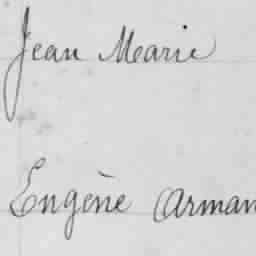 Jean Marie
Eugène Arman